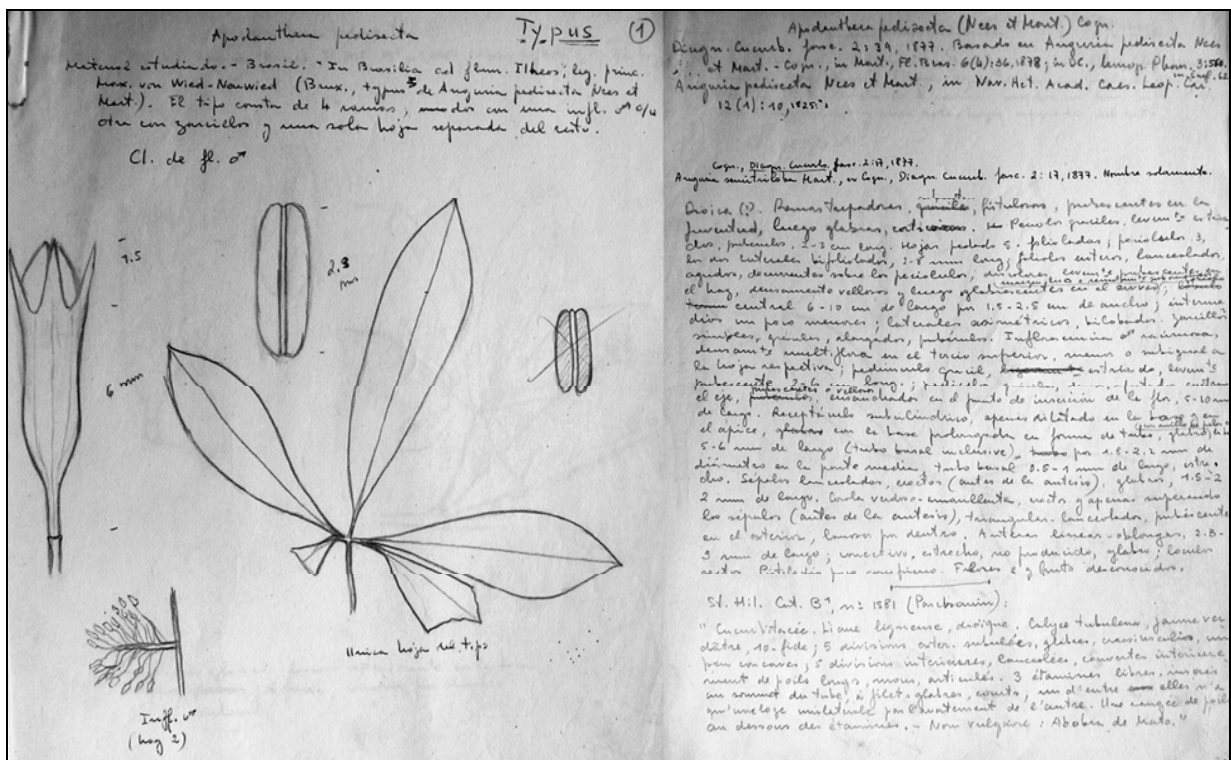 Apodanthera pedisecta
Typus (1)
Material estudiado. - Brasil. "In Brasilia ad flum. Ilheos, leg. princ.
Max. von Wied-Neuwied (Brux., typus de Anguria pedisecta Nees et
Mart.). El tipo consta de 4 ramas, unidas con una infl. ♂ c/u
otra con zarcillos y una sola hoja separada del resto.
Cl. de fl. ♂
1.5
6 mm
2.8
mm
Unica hoja del tipo
Infl. ♂
(hay 2)
Apodanthera pedisecta (Nees et Mart.) Cogn.
Diagn. Cucurb. fasc. 2: 39, 1877. Basado en Anguria pedisecta Nees
et Mart. - Cogn., in Mart., Fl. Bras. 6(4): 36, 1878; in DC., Monog. Phan. 3:
Anguria pedisecta Nees et Mart., in Nov. Act. Acad. Caes. Leop. Car.
12 (1): 10, 1825.
Cogn., Diagn. Cucurb. fasc. 2: 17, 1877.
Anguria semitriloba Mart., ex Cogn., Diagn. Cucurb. fasc. 2: 17, 1877. Nombre solamente.
Dioica (?). Ramas trepadoras, fistulosas, pubescentes en la
juventud, luego glabras. Peciolos graciles, levemte estria
dos, puberulos, 2-3 cm long. Hojas pedado 5-folioladas; peciolulos 3,
los dos laterales bifoliolados, 2-8 mm long; foliolos enteros, lanceolados,
agudos, decurrentes sobre los peciolulos, discolores, levemte pubescentes en
el haz, densamente vellosos y luego glabrescentes en el envés;
central 6-10 cm de largo por 1.5-2.5 cm de ancho; interme
dios un poco menores; laterales asimétricos, bilobados. Zarcillos
simples, graciles, alargados, puberulos. Inflorescencia ♂ racimosa,
densamte multiflora en el tercio superior, menor o subigual a
la hoja respectiva; pedunculo gracil, estriado, levemte
pubescente, long.; pedicelos
el eje, pubescentes o vellosos, ensanchados en el punto de inserción de la flor, 5-10 mm
de largo. Receptáculo subcilindrico, apenas dilatado en la base y en
el ápice, con la base prolongada en forma de tubo, glabro,
5-6 mm de largo (tubo basal inclusive), por 1.5-2.2 mm de
diámetro en la parte media, tubo basal 0.5-1 mm de largo, estre
cho. Sépalos lanceolados, erectos (antes de la antesis), glabros, 1.5-2
2 mm de largo. Corola verdoso-amarillenta, erectos y apenas superando
los sépalos (antes de la antesis), triangular-lanceolados, pubescentes
en el exterior, lanosos por dentro. Anteras linear-oblongas, 2.8-
3 mm de largo; conectivo estrecho, no producido, glabro; loculos
rectos. Flores ♀ y fruto desconocidos.
St. Hil. Cat. B1, n: 1581
"Cucurbitacée. Liane ligneuse, dioïque. Calyce tubuleux, jaune ver
dâtre, 10-fide; 5 divisions exter. subulées, glabres, un
peu concaves; 5 divisions intérieures, lanceolées, couvertes intérieure
ment de poils longs, mous, articulés. 3 étamines libres, insérées
au sommet du tube, à filets glabres, courts; un d'entre elles n'a
qu'une loge par l'avortement de l'autre. Une rangée de poils
au dessous des étamines. - Nom vulgaire: Abobra de Mato."